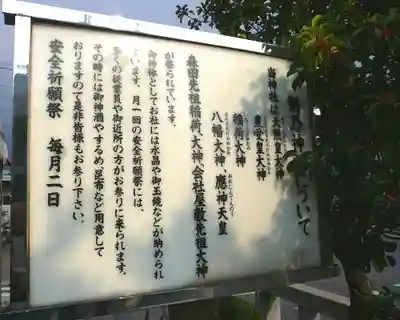 当神社は太祖皇大神
豊受皇大神
稲荷大神
八幡大神 應神天皇
森田先祖稲荷大神、会社屋敷先祖大神
が祭られています。
御神体としてお社には水晶や御玉鏡などが納められ
ています。月一回の安全祈願祭には、
多くの従業員や御近所の方がお参りに来られます。
その時には御神酒やするめ、昆布など用意して
おりますので是非皆様もお参り下さい。
安全祈願祭 毎月一日